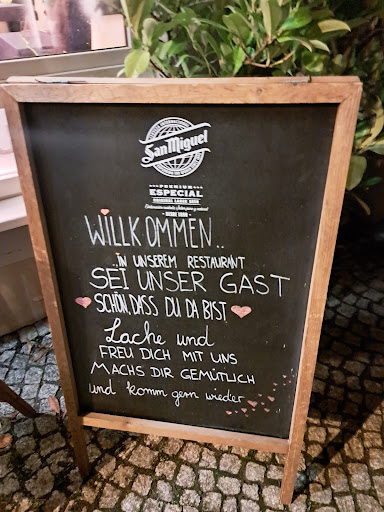 San Miguel
PREMIUM
ESPECIAL
WILLKOMMEN..
..IN UNSEREM RESTAURANT
SEI UNSER GAST
SCHÖN, DASS DU DA BIST
Lache und
FREU DICH MIT UNS
MACHS DIR GEMÜTLICH
und komm gern wieder